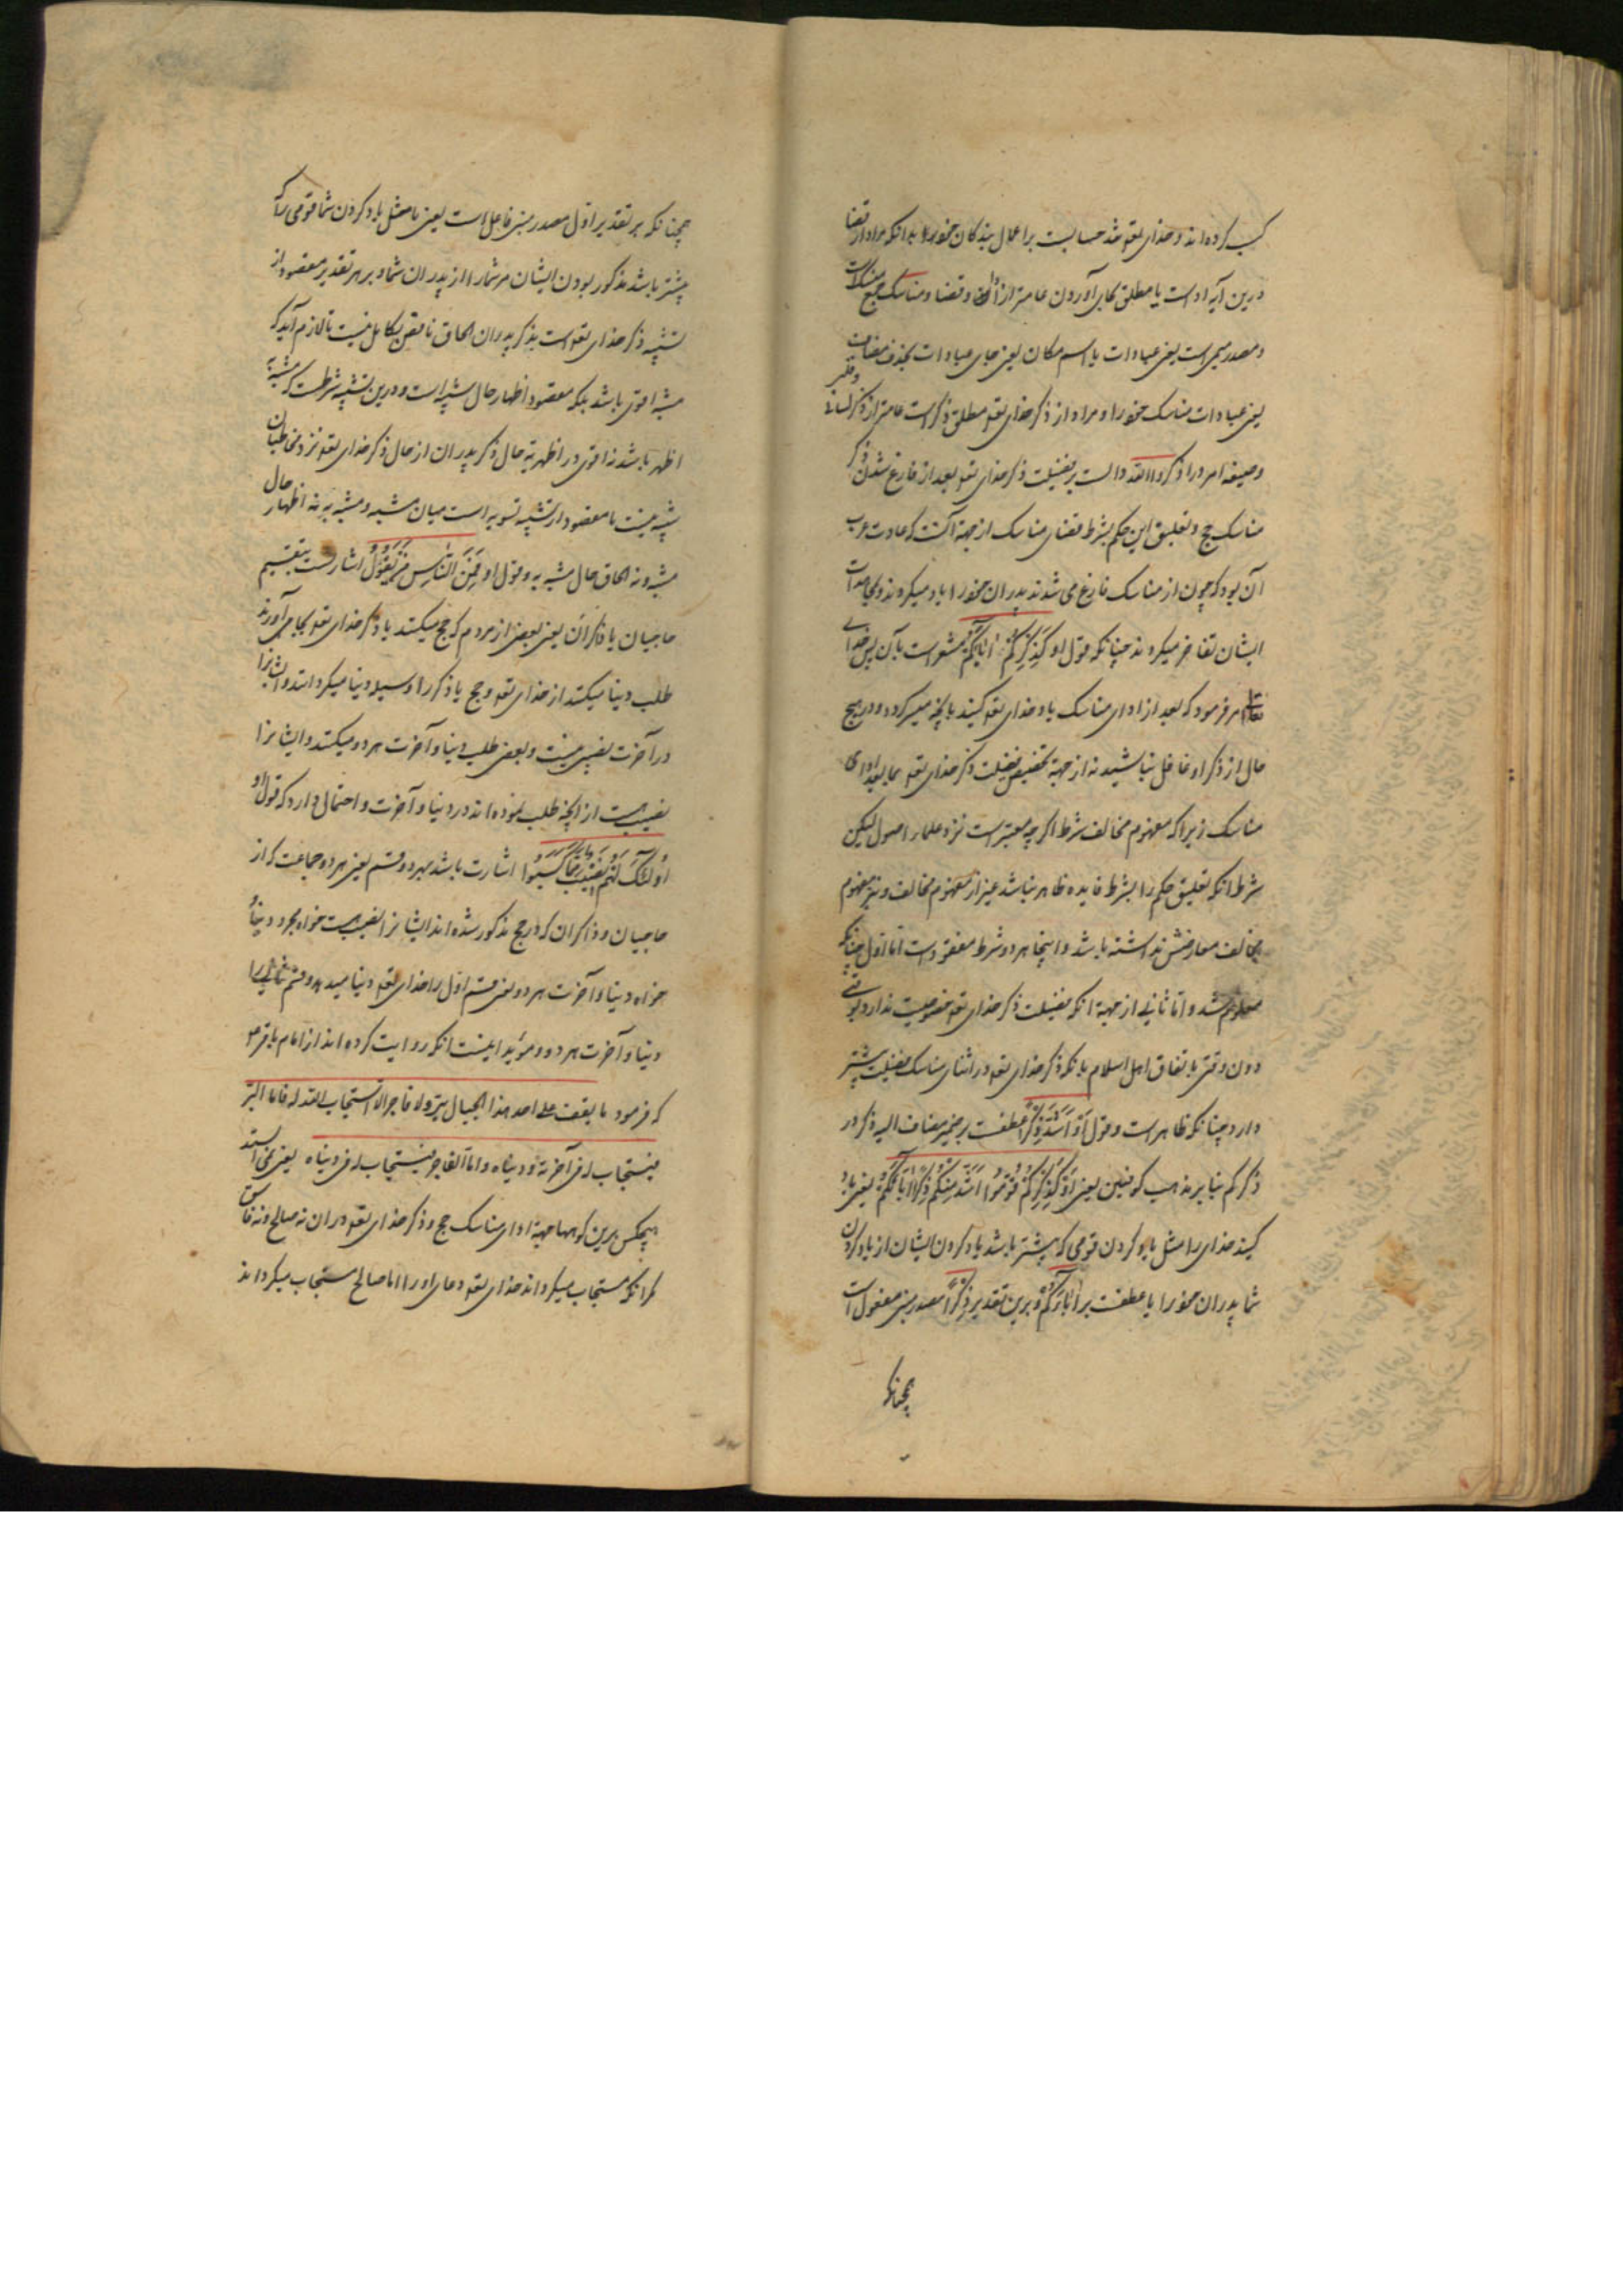 کسب کرده‌اند و خدای تعه تند حسابست بر اعمال بندکان خود بدانکه مراد از قضا
درین آیه ادا است یا مطلق بجای آوردن عامتر از ادا و قضا و مناسک جمع منسکات
و مصدر میمی است یعنی عبادات یا اسم مکان یعنی جای عبادات بحذف مضاف
یعنی عبادات مناسک خود را و مراد از ذکر خدای تعه مطلق ذکر است عامتر از ذکر لسانی و قلبی
و صیغه امر در اذکروا الله دالست بر فضیلت ذکر خدای تعه بعد از فارغ شدن از
مناسک حج و تعلیق این حکم بشرط قضای مناسک از جهة آنست که عادت عرب
آن بود که چون از مناسک فارغ می شدند پدران خود را یاد میکردند و بمحامدات
ایشان تفاخر میکردند چنانکه قول او کَذِکْرِکُمْ اٰبَآئَکُمْ مشعر است بآن پس خدای
تعالی امر فرمود که بعد از ادای مناسک یاد خدای تعه کنید بآنچه میسر کردد و در هیچ
حال از ذکر او غافل نباشید نه از جهة تخصیص فضیلت ذکر خدای تعه بما بعد ادای
مناسک زیرا که مفهوم مخالف شرط اکرچه معتبر است نزد علماء اصول لیکن
شرط انکه تعلیق حکم را بشرط فایده ظاهر نباشد غیر از مفهوم مخالف و نیز مفهوم
مخالف معارضش نداشته باشد و اینجا هر دو شرط مفقود است اما اول چنانکه
معلوم شد و اما ثانی از جهة انکه فضیلت ذکر خدای تعه خصوصیت ندارد بوقتی
دون وقتی باتفاق اهل اسلام بلکه ذکر خدای تعه در اثنای مناسک فضیلت بیشتر
دارد چنانکه ظاهر است و قول اَوْ اَشَدَّ ذِکْرًا عطفست بر ضمیر مضاف الیه ذکر در
ذکرکم بنا بر مذهب کوفیین یعنی اَوْ کَذِکْرِ کُمْ قَوْمٍ اَشَدَّ مِنْکُمْ ذِکْرًا اٰبَآئَکُمْ یعنی یاد
کنید خدای را مثل یاد کردن قومی که بیشتر باشد یاد کردن ایشان از یاد کردن
شما پدران خود را یا عطفست بر اٰبَآئَکُمْ و برین تقدیر ذِکْرًا مصدر مبنی مفعول است
همچنانکه
همچنانکه بر تقدیر اول مصدر مبنی فاعل است یعنی یا مثل یاد کردن شما قومی را که
بیشتر باشد مذکور بودن ایشان مر شما را از پدران شما و بر هر تقدیر مقصود از
تشبیه ذکر خدای تعه است بذکر پدران الحاق ناقص بکامل نیست تا لازم آید که
مشبه اقوی باشد بلکه مقصود اظهار حال مشبه است و درین تشبیه شرطست که مشبه به
اظهر باشد نه اقوی و در اظهریة حال ذکر پدران از حال ذکر خدای تعه نزد مخاطبان
شبه نیست یا مقصود از تشبیه تسویه است میان مشبه و مشبه به نه اظهار حال
مشبه و نه الحاق حال مشبه به و قول او فَمِنَ النَّاسِ مَنْ یَقُوْلُ اشارتست بتقسیم
حاجیان یا ذاکران یعنی بعضی از مردم که حج میکنند یا ذکر خدای تعه بجا می آورند
طلب دنیا میکنند از خدای تعه و حج یا ذکر را وسیله دنیا میکردانند و ایشانرا
در آخرت نصیبی نیست و بعضی طلب دنیا و آخرت هر دو میکنند و ایشانرا
نصیب هست از آنچه طلب نموده‌اند در دنیا و آخرت و احتمال دارد که قول او
اُولٰئِکَ لَهُمْ نَصِیْبٌ مِمَّا کَسَبُوْا اشارت باشد بهر دو قسم یعنی هر دو جماعت که از
حاجیان و ذاکران که در حج مذکور شده‌اند ایشانرا نصیب هست خواه مجرد دنیا
خواه دنیا و آخرت هر دو یعنی قسم اول را خدای تعه دنیا میدهد و قسم ثانی را
دنیا و آخرت هر دو و مؤید اینست آنکه روایت کرده‌اند از امام باقر ع
که فرمود ما یقف علی احد هذا الجبال بر ولا فاجر الا استجاب الله له فاما البر
فیستجاب له فی آخرته و دنیاه و اما الفاجر فیستجاب له فی دنیاه یعنی نمی ایستد
هیچکس برین کوهها جهة ادای مناسک حج و ذکر خدای تعه در ان نه صالح و نه فاسق
مکر انکه مستجاب میکرداند خدای تعه دعای او را اما صالح مستجاب میکرداند